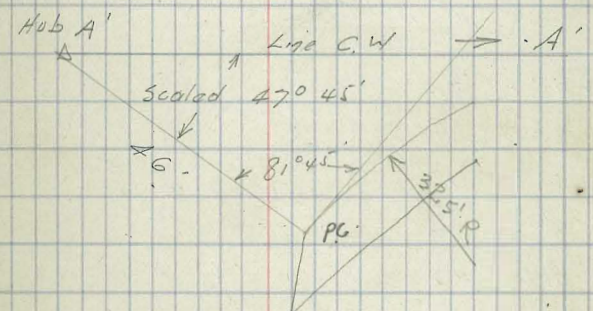 Hub A'
Line C.W → . A'
Scaled 47° 45'
6.
81° 45'
P.C.
325' R